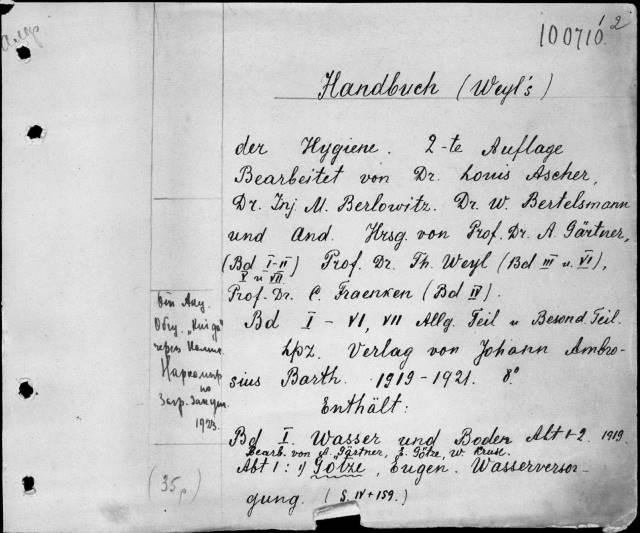 100710. 2
Handbuch (Weyl's)
der Hygiene. 2-te Auflage
Bearbeitet von Dr. Louis Ascher,
Dr. Inj M. Berlowitz. Dr. W. Bertelsmann
und And. Hrsg. von Prof. Dr. A. Gärtner,
(Bd I-II) Prof. Dr. Th. Weyl (Bd III u. VI),
V u VII
Prof. Dr. C. Fraenken (Bd IV).
Bd I - VI, VII Allg. Teil u Besond. Teil.
Lpz. Verlag von Johann Ambro-
sius Barth. 1919-1921. 8°
Enthält:
Bd I. Wasser und Boden Abt 1-2. 1919.
Bearb. von A. Gärtner, E. Götze, W. Kruse.
Abt 1: 1) Götze, Eugen. Wasserversor-
gung. (S. IV + 159.)
Общ. "Книга"
через
по
1923.
(35р)